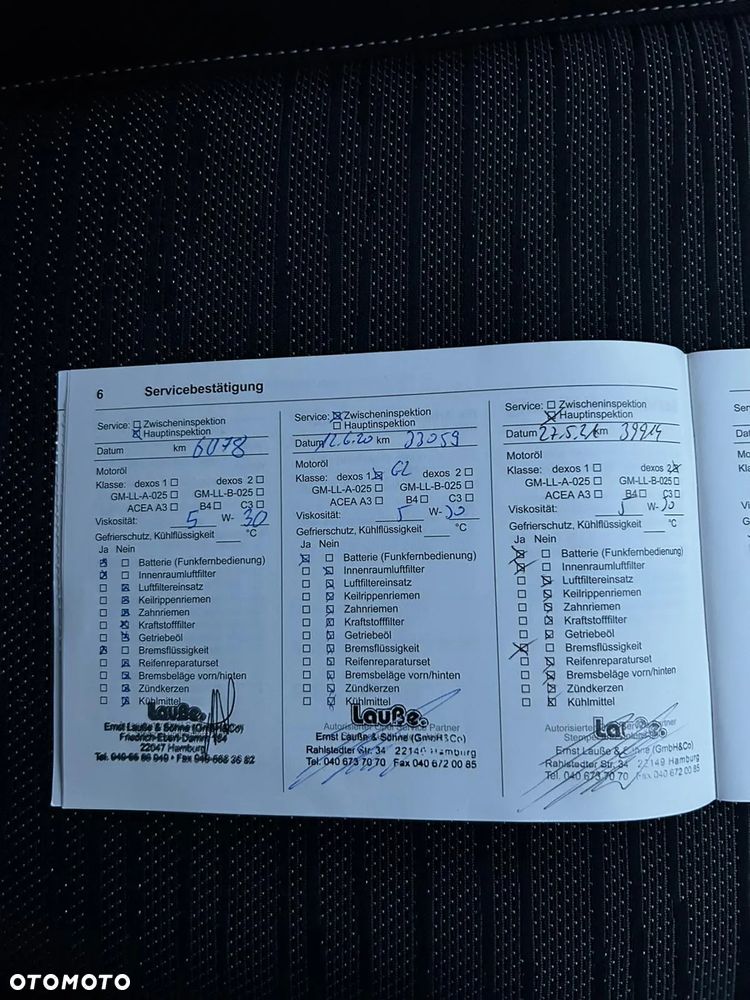 6 Servicebestätigung
Service: Zwischeninspektion
Hauptinspektion
Datum km 6078
Motoröl
Klasse: dexos 1 dexos 2
GM-LL-A-025 GM-LL-B-025
ACEA A3 B4 C3
Viskosität: 5 W- 30
Gefrierschutz, Kühlflüssigkeit °C
Ja Nein
Batterie (Funkfernbedienung)
Innenraumluftfilter
Luftfiltereinsatz
Keilrippenriemen
Zahnriemen
Kraftstofffilter
Getriebeöl
Bremsflüssigkeit
Reifenreparaturset
Bremsbeläge vorn/hinten
Zündkerzen
Kühlmittel
Lauße.
Ernst Lauße & Söhne (GmbH&Co)
Friedrich-Ebert-Damm 184
22047 Hamburg
Service: Zwischeninspektion
Hauptinspektion
Datum 12.6.20 km 33059
Motoröl
Klasse: dexos 1 C2 dexos 2
GM-LL-A-025 GM-LL-B-025
ACEA A3 B4 C3
Viskosität: 5 W- 30
Gefrierschutz, Kühlflüssigkeit °C
Ja Nein
Batterie (Funkfernbedienung)
Innenraumluftfilter
Luftfiltereinsatz
Keilrippenriemen
Zahnriemen
Kraftstofffilter
Getriebeöl
Bremsflüssigkeit
Reifenreparaturset
Bremsbeläge vorn/hinten
Zündkerzen
Kühlmittel
Lauße.
Autorisierter Opel Service Partner
Ernst Lauße & Söhne (GmbH&Co)
Rahlstedter Str. 34 22149 Hamburg
Tel. 040 673 70 70 Fax 040 672 00 85
Service: Zwischeninspektion
Hauptinspektion
Datum 27.5.21 km 39914
Motoröl
Klasse: dexos 1 dexos 2
GM-LL-A-025 GM-LL-B-025
ACEA A3 B4 C3
Viskosität: 5 W- 30
Gefrierschutz, Kühlflüssigkeit °C
Ja Nein
Batterie (Funkfernbedienung)
Innenraumluftfilter
Luftfiltereinsatz
Keilrippenriemen
Zahnriemen
Kraftstofffilter
Getriebeöl
Bremsflüssigkeit
Reifenreparaturset
Bremsbeläge vorn/hinten
Zündkerzen
Kühlmittel
Lauße.
Autorisierter Service Partner
Ernst Lauße & Söhne (GmbH&Co)
Rahlstedter Str. 34 22149 Hamburg
Tel. 040 673 70 70 Fax 040 672 00 85
OTOMOTO